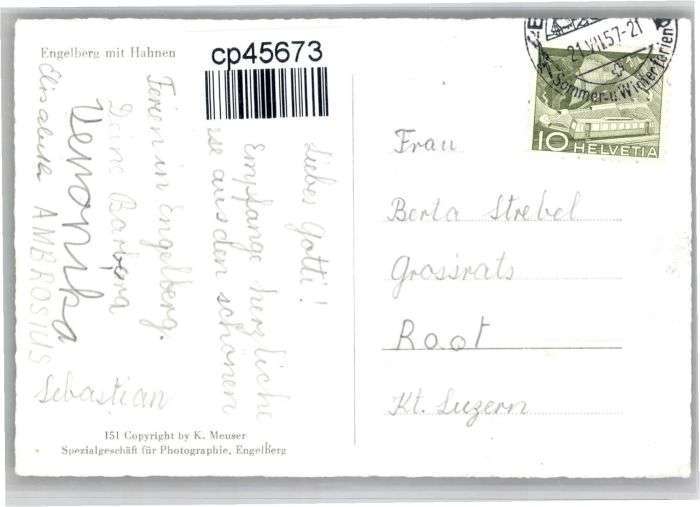 Engelberg mit Hahnen
cp45673
Liebes Gotti!
Empfange herzliche
aus den schönen
Ferien in Engelberg.
Deine Barbara
Veronika
Elisabeth AMBROSIUS
Sebastian
151 Copyright by K. Meuser
Spezialgeschäft für Photographie, Engelberg
21.VII.57-21
Sommer- u. Winterferien
10 HELVETIA
Frau
Berta Strebel
Grossrats
Root
Kt. Luzern